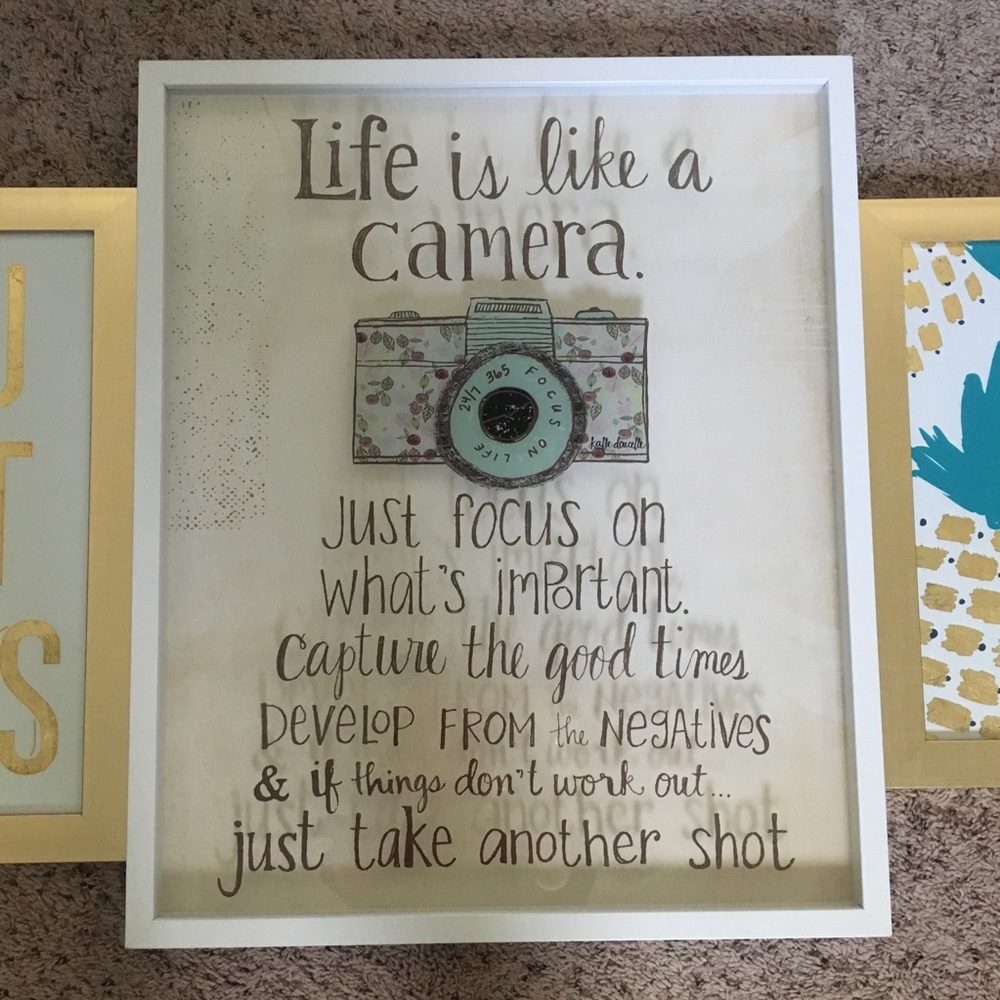 Life is like a
camera.
24/7 365 FOCUS ON LIFE
katie doucette
Just focus on
what's imPortant.
Capture the good times
DEVELOP FROM the NEgAtiVES
& if things don't work out...
just take another shot
U
T
S